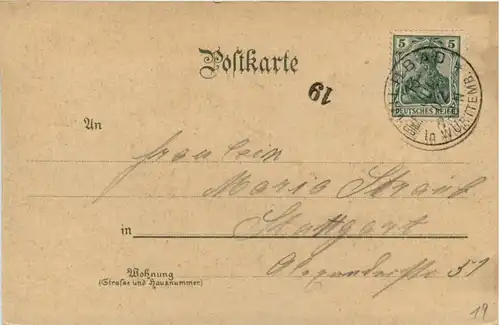 Postkarte
5
DEUTSCHES REICH
WILDBAD
in WÜRTTEMB.
19
An
Fräulein
Marie Straub
in Stuttgart
Alexanderstr 51
Wohnung
(Straße und Hausnummer)
19